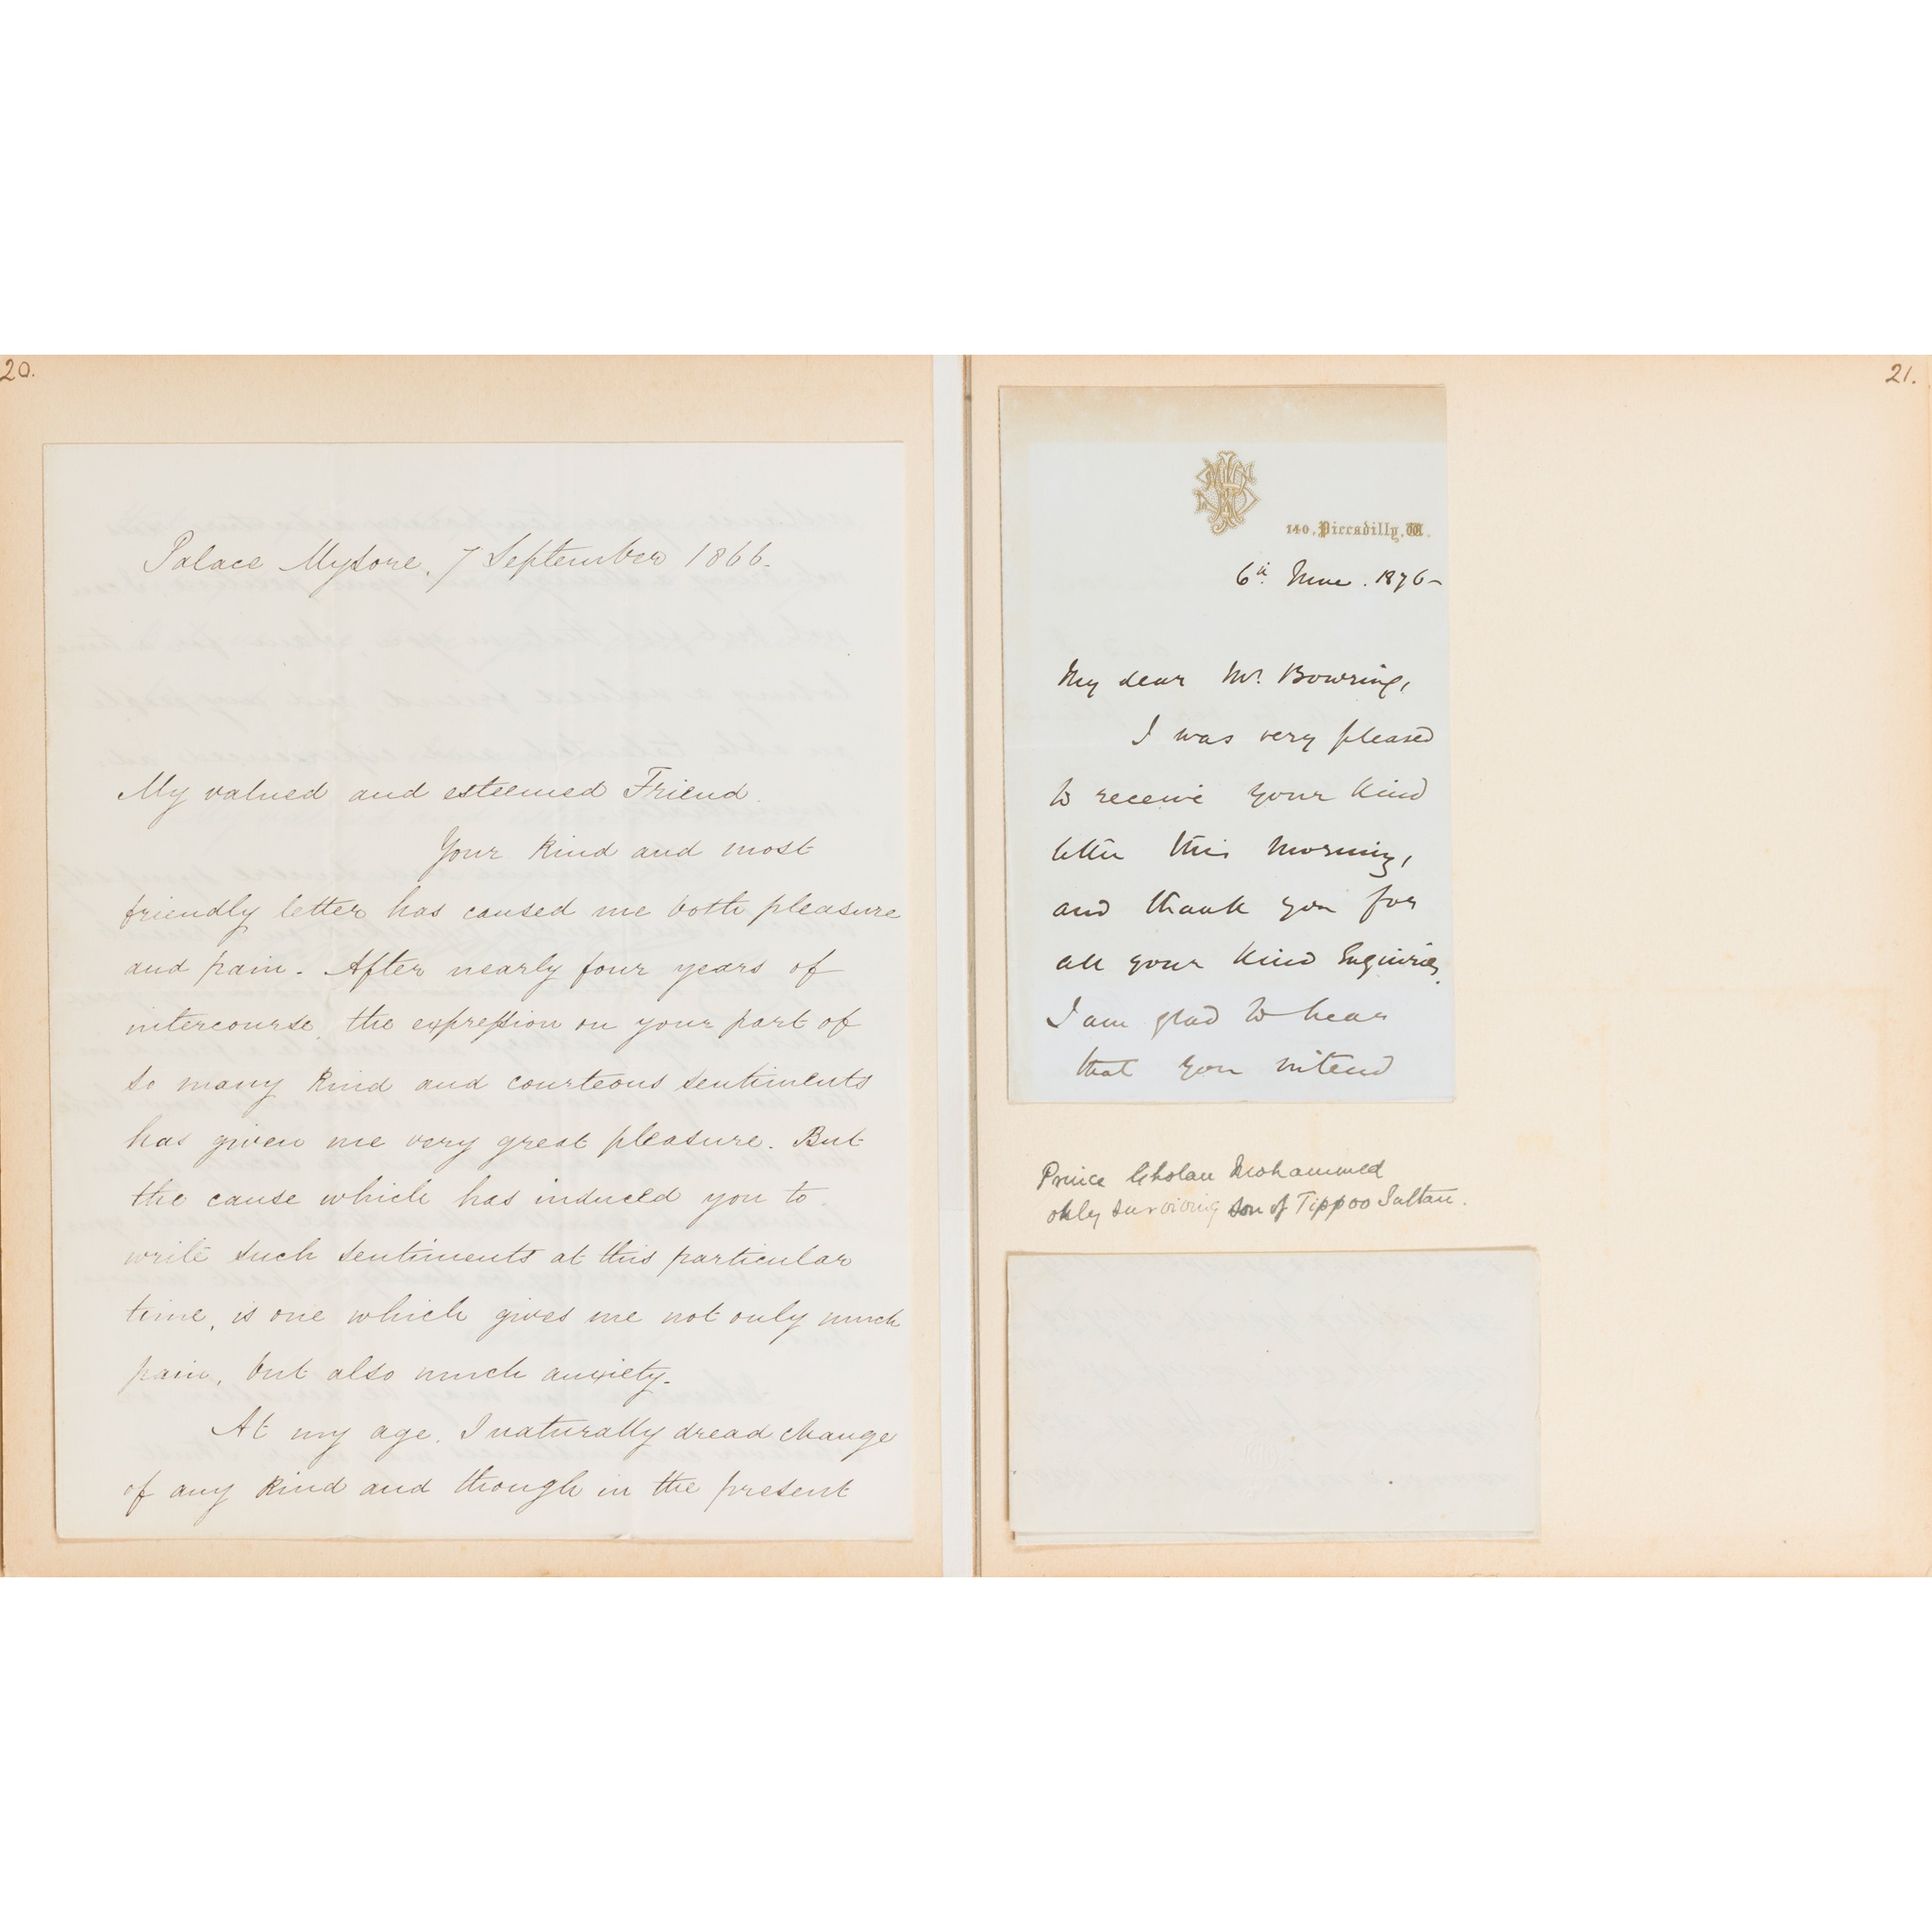 20.
Palace Mysore. 7 September 1866.
My valued and esteemed Friend.
Your kind and most
friendly letter has caused me both pleasure
and pain. After nearly four years of
intercourse, the expression on your part of
so many kind and courteous sentiments
has given me very great pleasure. But
the cause which has induced you to
write such sentiments at this particular
time, is one which gives me not only much
pain, but also much anxiety.
At my age, I naturally dread change
of any kind and though in the present
21.
140, Piccadilly, W.
6th June. 1876-
My dear Mr. Bowring,
I was very pleased
to receive your kind
letter this morning,
and thank you for
all your kind Enquiries.
I am glad to hear
that you intend
Prince Gholam Mohammed
only surviving son of Tippoo Sultan.